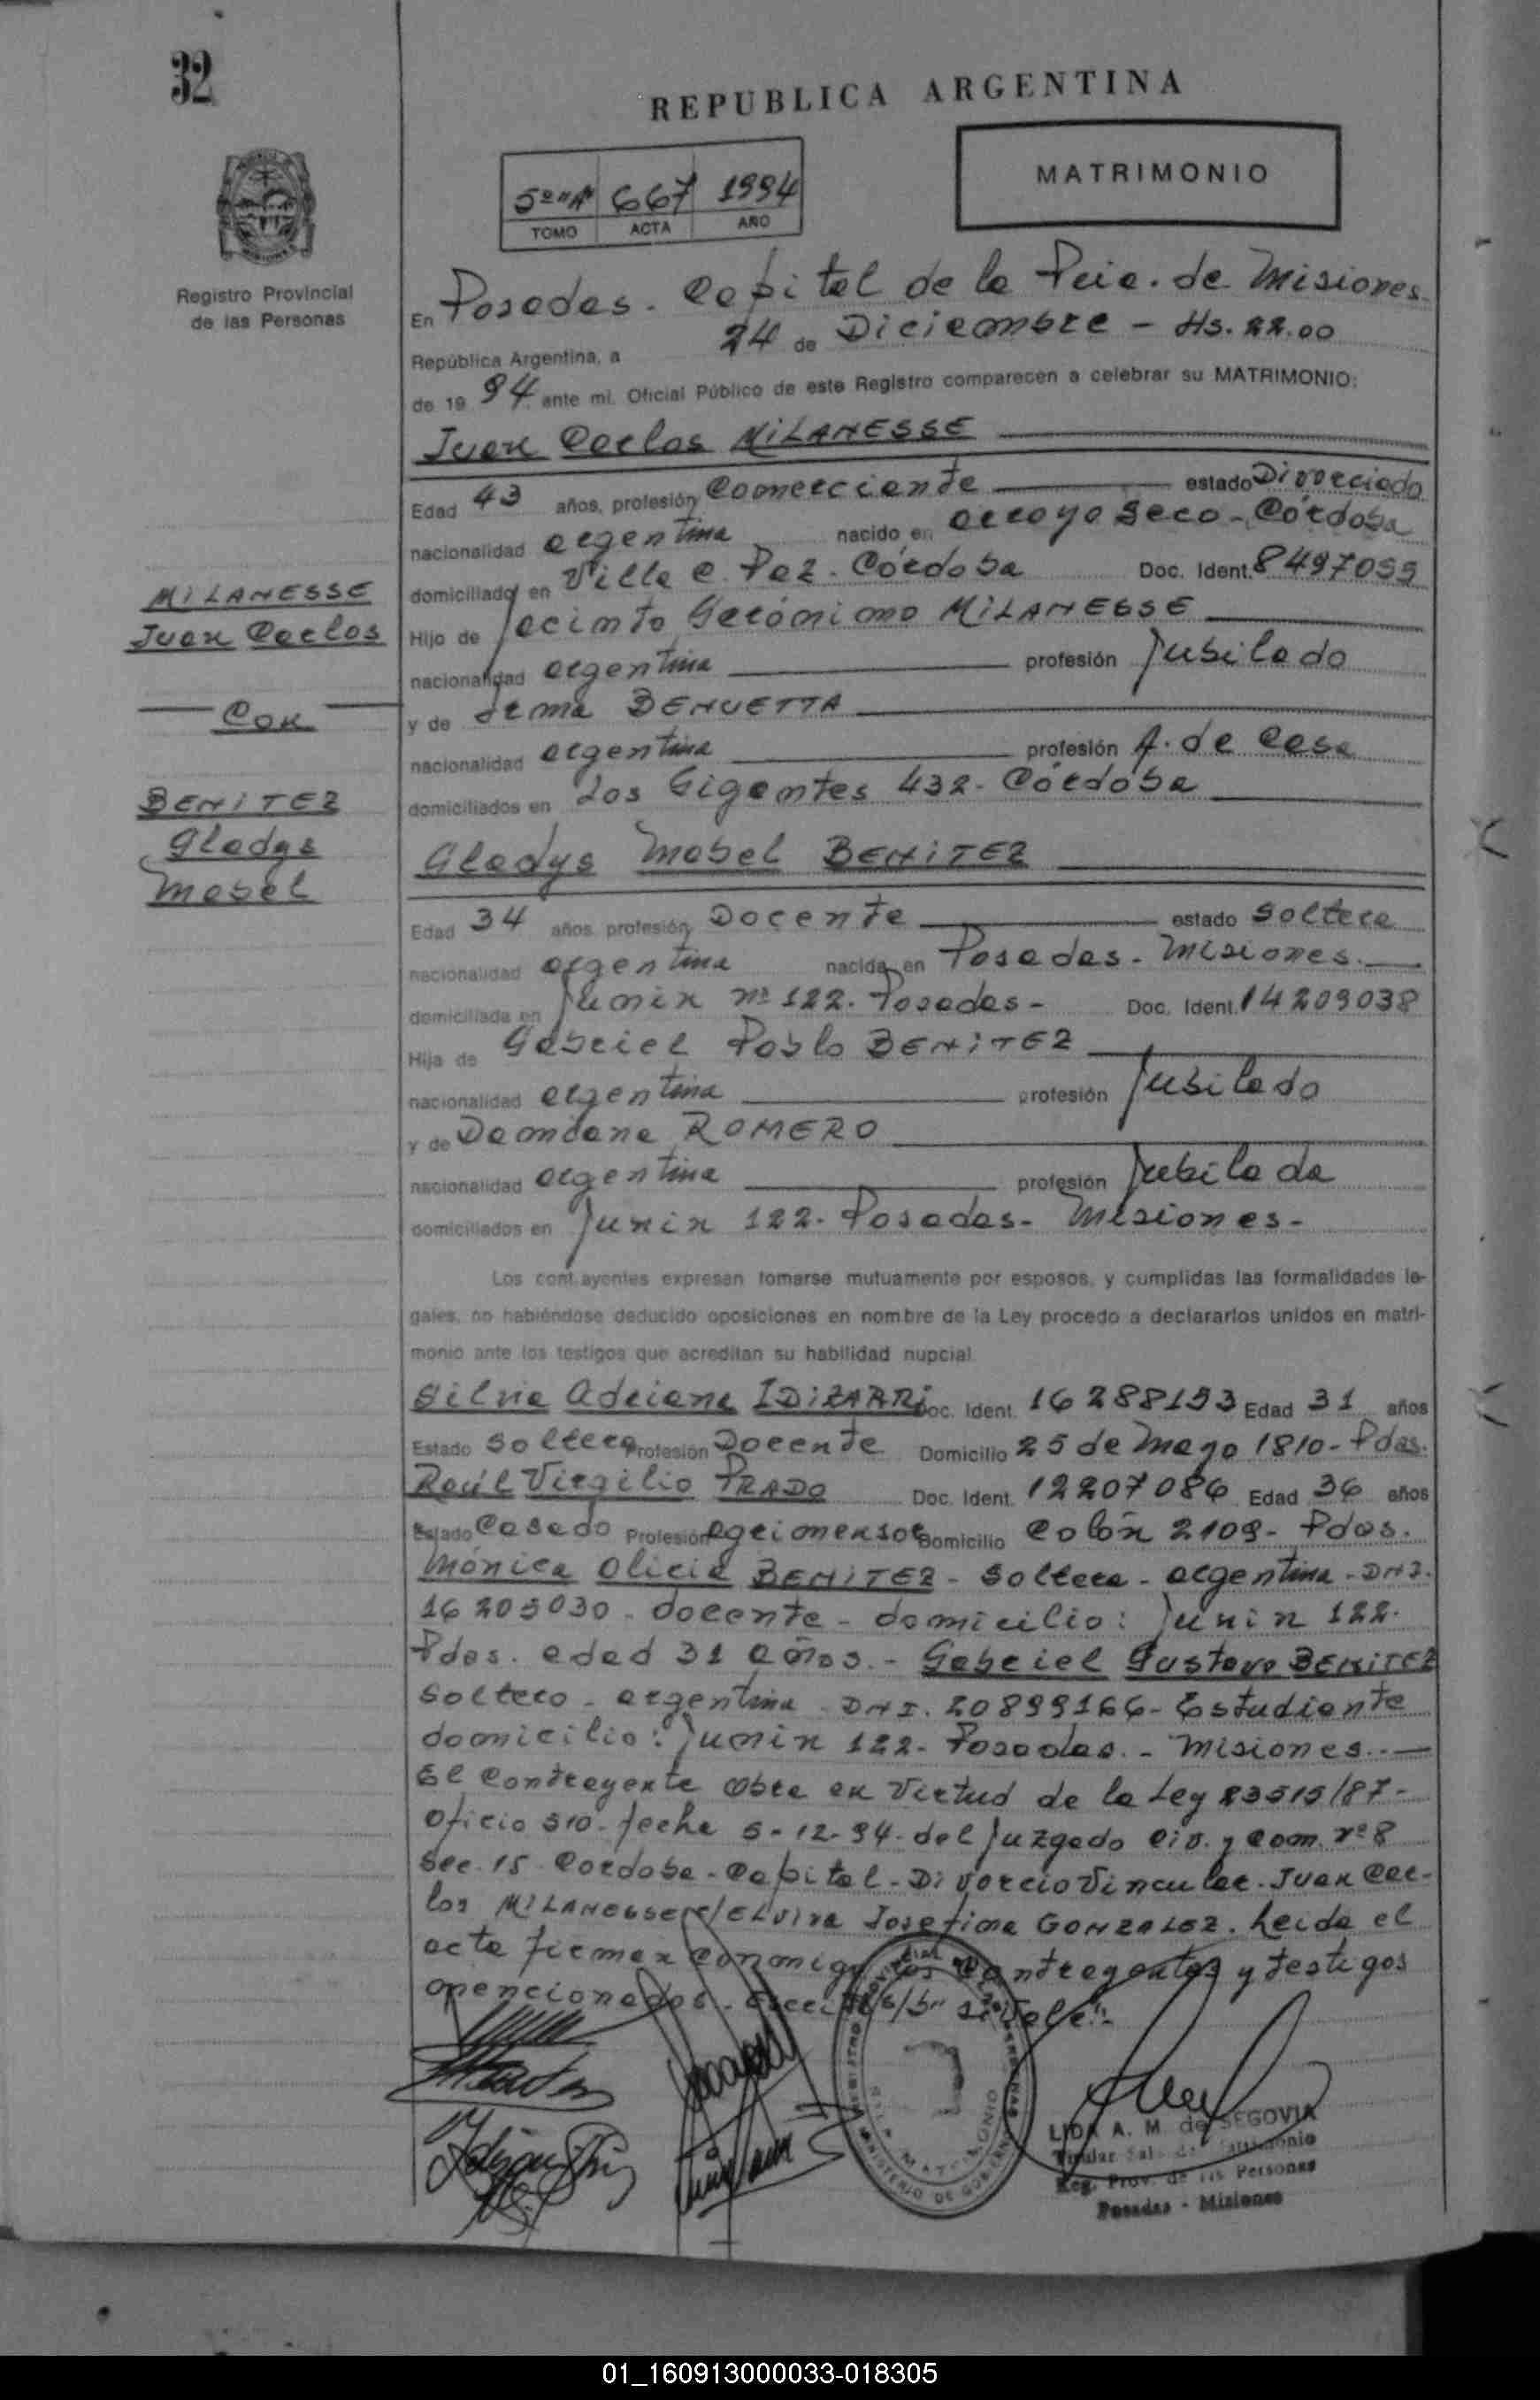 32
REPUBLICA ARGENTINA
MATRIMONIO
5º "A" 667 1994
TOMO ACTA AÑO
Registro Provincial
de las Personas
En Posadas - Capital de la Pcia. de Misiones.
República Argentina, a 24 de Diciembre - Hs. 22.00
de 1994 ante mí, Oficial Público de este Registro comparecen a celebrar su MATRIMONIO:
Juan Carlos MILANESSE
Edad 43 años, profesión Comerciante estado Divorciado
nacionalidad argentina nacido en Arroyo Seco - Córdoba
domiciliado en Villa C. Paz - Córdoba Doc. Ident. 8497099
Hijo de Jacinto Gerónimo MILANESSE
nacionalidad argentina profesión Jubilado
y de Irma BENVETTA
nacionalidad argentina profesión A. de Casa
domiciliados en Los Gigantes 432 - Córdoba
MILANESSE
Juan Carlos
Con
BENITEZ
Gladys
Mabel
Gladys Mabel BENITEZ
Edad 34 años profesión Docente estado Soltera
nacionalidad argentina nacida en Posadas - Misiones.
domiciliada en Junin nº 122 - Posadas - Doc. Ident. 14209038
Hija de Gabriel Pablo BENITEZ
nacionalidad argentina profesión Jubilado
y de Damiana ROMERO
nacionalidad argentina profesión Jubilada
domiciliados en Junin 122 - Posadas - Misiones -
Los contrayentes expresan tomarse mutuamente por esposos, y cumplidas las formalidades le-
gales, no habiéndose deducido oposiciones en nombre de la Ley procedo a declararlos unidos en matri-
monio ante los testigos que acreditan su habilidad nupcial
Silvia Adriana IDIZARRI Doc. Ident. 16288193 Edad 31 años
Estado Soltera Profesión Docente Domicilio 25 de Mayo 1810 - Pdas.
Raúl Virgilio PRADO Doc. Ident. 12207086 Edad 36 años
Estado Casado Profesión Agrimensor Domicilio Colón 2109 - Pdas.
Mónica Alicia BENITEZ - Soltera - argentina - DNI.
16209030 - docente - domicilio: Junin 122.
Pdas. edad 31 años. - Gabriel Gustavo BENITEZ
Soltero - argentina - DNI. 20899166 - Estudiante
domicilio: Junin 122 - Posadas. - Misiones. -
El contrayente obra en Virtud de la Ley 23515/87 -
Oficio 510 - fecha 5-12-94 - del Juzgado Civ. y Com. nº 8
Sec. 15 - Cordoba - Capital - Divorcio Vincular - Juan Car-
los MILANESSE c/ ELVIRA Josefina GONZALEZ. Leida el
acta firman conmigo los contrayentes y testigos
mencionados. s/b" si Vale".
REGISTRO PROVINCIAL DE LAS PERSONAS
SALA MATRIMONIO
MINISTERIO DE GOBIERNO
LIDA A. M. de SEGOVIA
Titular Sala de Matrimonio
Reg. Prov. de las Personas
Posadas - Misiones
01_160913000033-018305